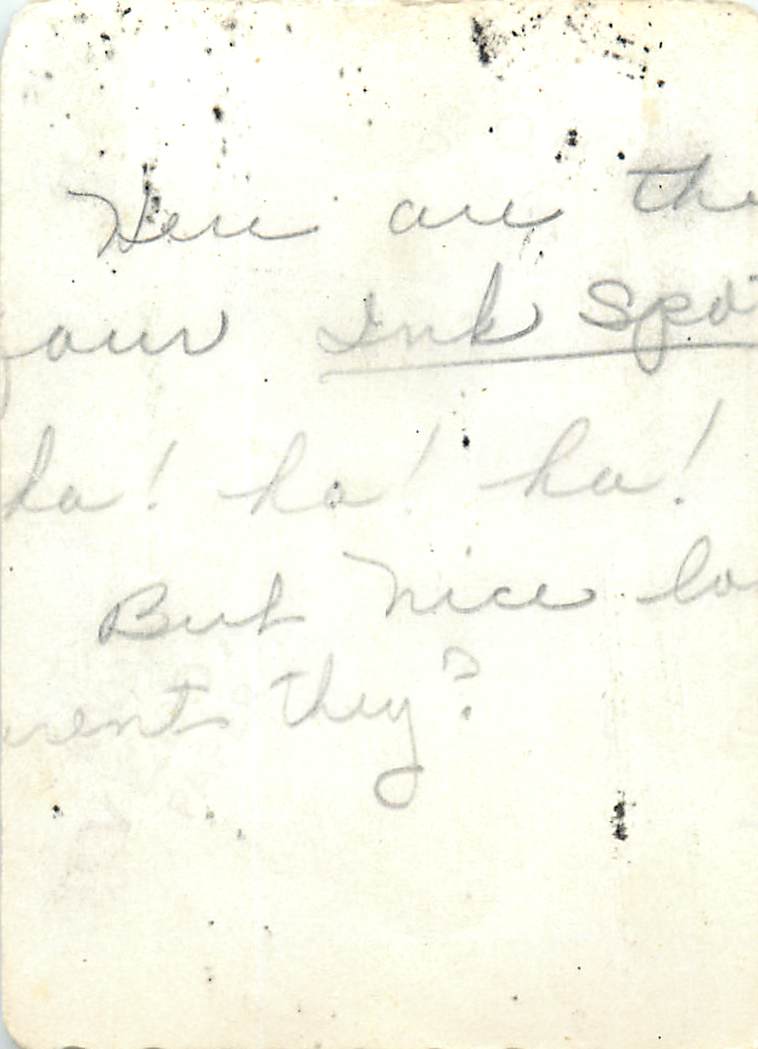 Here are the
four Ink Spot
ha! ha! ha!
But nice lo
arent they?